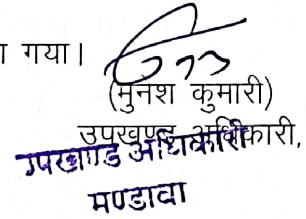 ा गया।
(मुनेश कुमारी)
उपखण्ड अधिकारी,
उपखण्ड अधिकारी
मण्डावा